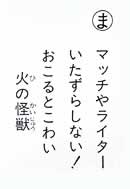 ま
マッチやライター
いたずらしない!
おこるとこわい
火の怪獣
ひ かいじゅう